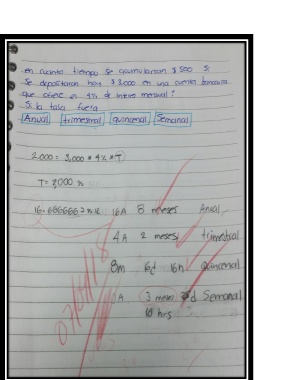 en cuanto tiempo se acumularian $ 500 si
se depositaron hoy $ 3,000 en una cuenta bancaria
que ofrece el 4% de interes mensual?
Si la tasa fuera
Anual trimestral quincenal Semanal
2,000 = 3,000 * 4% * T
T =
16.6666662 16A 8 meses Anual
4A 2 meses trimestral
8m 16h quincenal
3 meses d Semanal
10 hrs